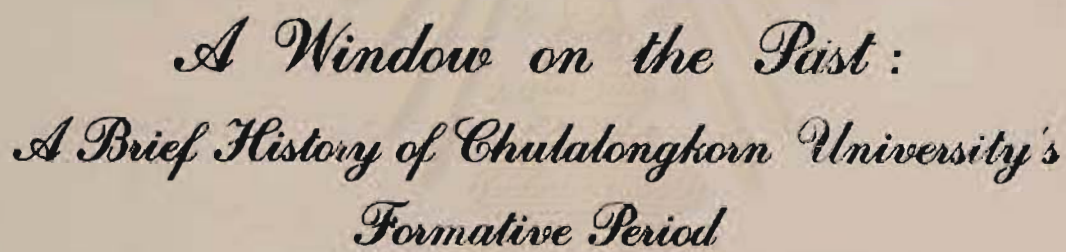 A Window on the Past :
A Brief History of Chulalongkorn University's
Formative Period